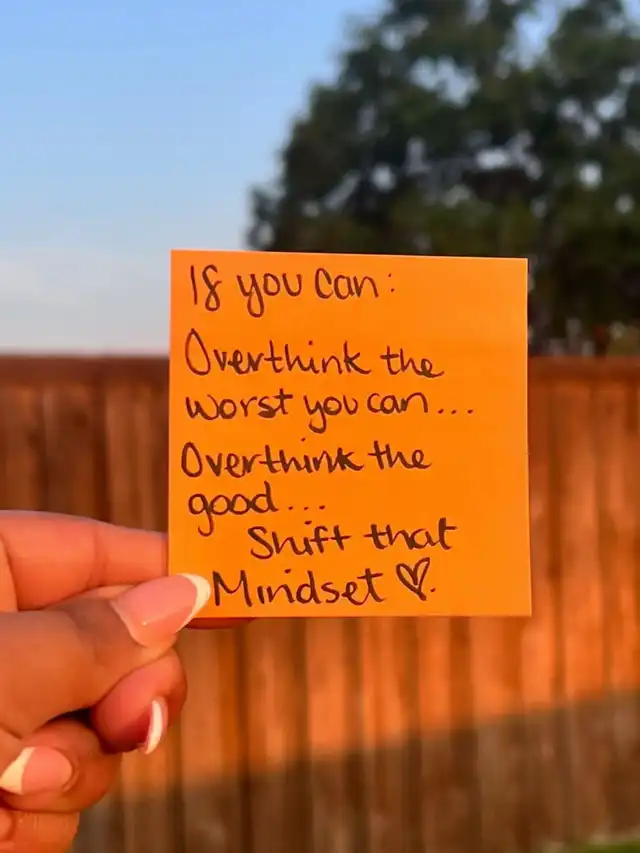 If you can:
Overthink the
worst you can...
Overthink the
good...
Shift that
Mindset ♡.